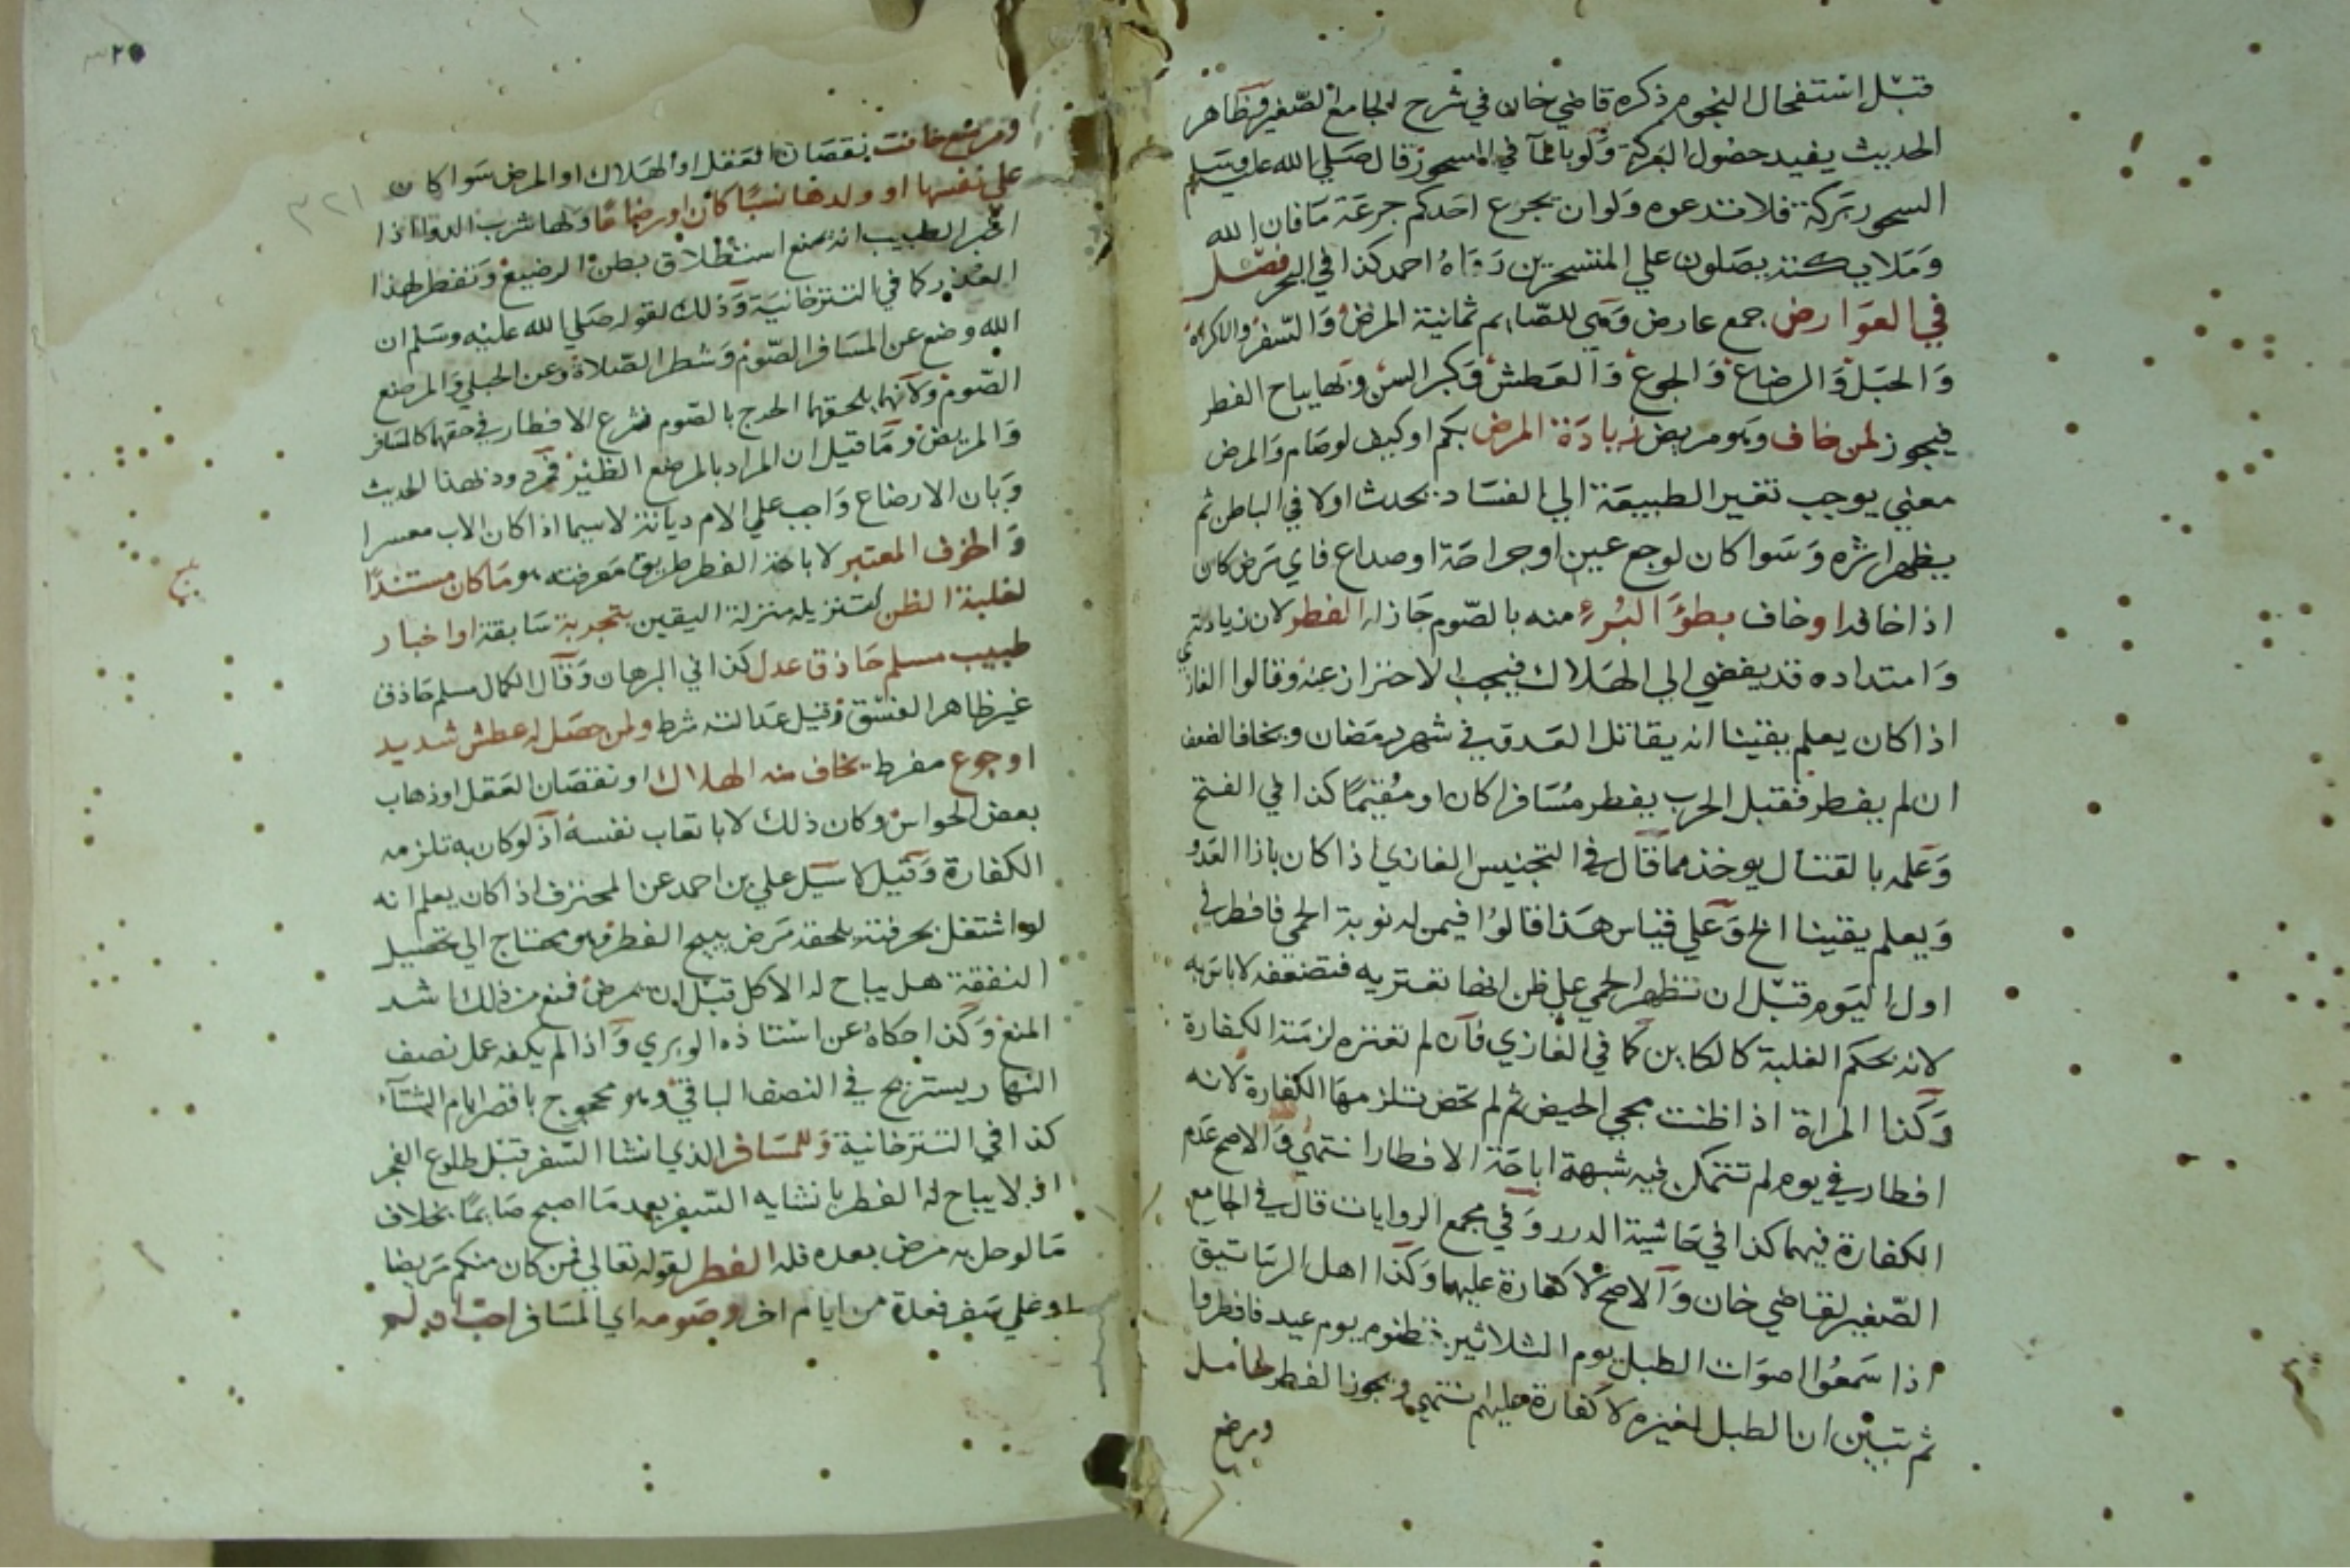 قبل استفحال النجوم ذكره قاضي خان في شرح الجامع الصغير وظاهر
الحديث يفيد حصول البركة ولو بالماء في السحور قال صلي الله عليه وسلم
السحور بركة فلا تدعوه ولو ان يجرع احدكم جرعة ما فان الله
وملايكته يصلون علي المتسحرين رواه احمد كذا في البحر فصل
في العوارض جمع عارض وهي للصايم ثمانية المرض والسفر والاكراه
والحبل والرضاع والجوع والعطش وكبر السن وبها يباح الفطر
فيجوز لمن خاف وهو مريض زيادة المرض بكم او كيف لو صام والمرض
معني يوجب تغير الطبيعة الي الفساد يحدث اولا في الباطن ثم
يظهر اثره وسوا كان لوجع عين او جراحة او صداع فاي مرض كان
اذا خاف او خاف بطؤ البرء منه بالصوم جاز له الفطر لان زيادته
وامتداده قد يفضي الي الهلاك فيجب الاحتراز عنه وقالوا الغازي
اذا كان يعلم يقينا انه يقاتل العدو في شهر رمضان ويخاف الضعف
ان لم يفطر فقبل الحرب يفطر مسافرا كان او مقيما كذا في الفتح
وعلمه بالقتال يوخذ مما قال في التجنيس الغازي اذا كان بازا العدو
ويعلم يقينا الخ وعلي قياس هذا قالوا فيمن له نوبة الحمي فافطر في
اول اليوم قبل ان تظهر الحمي علي ظن انها تعتريه فتضعفه لا باس به
لانه بحكم الغلبة كالكاين كما في الغازي فان لم تعتره لزمته الكفارة
وكذا المراة اذا ظنت مجي الحيض ثم لم تحض تلزمها الكفارة لانه
افطار في يوم لم تتمكن فيه شبهة اباحة الافطار انتهي والاصح عدم
الكفارة فيهما كذا في حاشية الدرر وفي مجمع الروايات قال في الجامع
الصغير لقاضي خان والاصح لا كفارة عليهما وكذا اهل الرساتيق
اذا سمعوا اصوات الطبل يوم الثلاثين فظنوه يوم عيد فافطروا
ثم تبين ان الطبل لغيره لا كفارة عليهم انتهي ويجوز الفطر لحامل
ومرضع
٣٢٠
٣٢١
ومرضع خافت نقصان العقل او الهلاك او المرض سوا كان
علي نفسها او ولدها نسبا كان او رضاعا ولها شرب الدوا اذا
اخبر الطبيب انه يمنع استطلاق بطن الرضيع وتفطر لهذا
العذر كما في التتزخانية وذلك لقوله صلي الله عليه وسلم ان
الله وضع عن المسافر الصوم وشطر الصلاة وعن الحبلي والمرضع
الصوم ولانهما يلحقهما الحرج بالصوم فشرع الافطار في حقهما كالمسافر
والمريض وما قيل ان المراد بالمرضع الظئر فمردود لهذا الحديث
وبان الارضاع واجب علي الام ديانة لا سيما اذا كان الاب معسرا
والخوف المعتبر لاباحة الفطر طريق معرفته هو ما كان مستندا
لغلبة الظن لتنزيله منزلة اليقين بتجربة سابقة او اخبار
طبيب مسلم حاذق عدل كذا في البرهان وقال الكمال مسلم حاذق
غير ظاهر الفسق وقيل عدالته شرط ولمن حصل له عطش شديد
او جوع مفرط يخاف منه الهلاك او نقصان العقل او ذهاب
بعض الحواس وكان ذلك لا باتعاب نفسه اذ لو كان به تلزمه
الكفارة وقيل لا سيل علي بن احمد عن المحترف اذا كان يعلم انه
لو اشتغل بحرفته يلحقه مرض يبيح الفطر وهو محتاج الي تحصيل
النفقة هل يباح له الاكل قبل ان يمرض فمنع من ذلك اشد
المنع وكذا حكاه عن استاذه الوبري واذا لم يكفه عمل نصف
النهار يستريح في النصف الباقي وهو محجوج باقصر ايام الشتاء
كذا في التتزخانية وللمسافر الذي انشا السفر قبل طلوع الفجر
اذ لا يباح له الفطر بانشايه السفر بعد ما اصبح صايما بخلاف
ما لو حل به مرض بعده فله الفطر لقوله تعالي فمن كان منكم مريضا
او علي سفر فعدة من ايام اخر وصومه اي المسافر احب ان لم